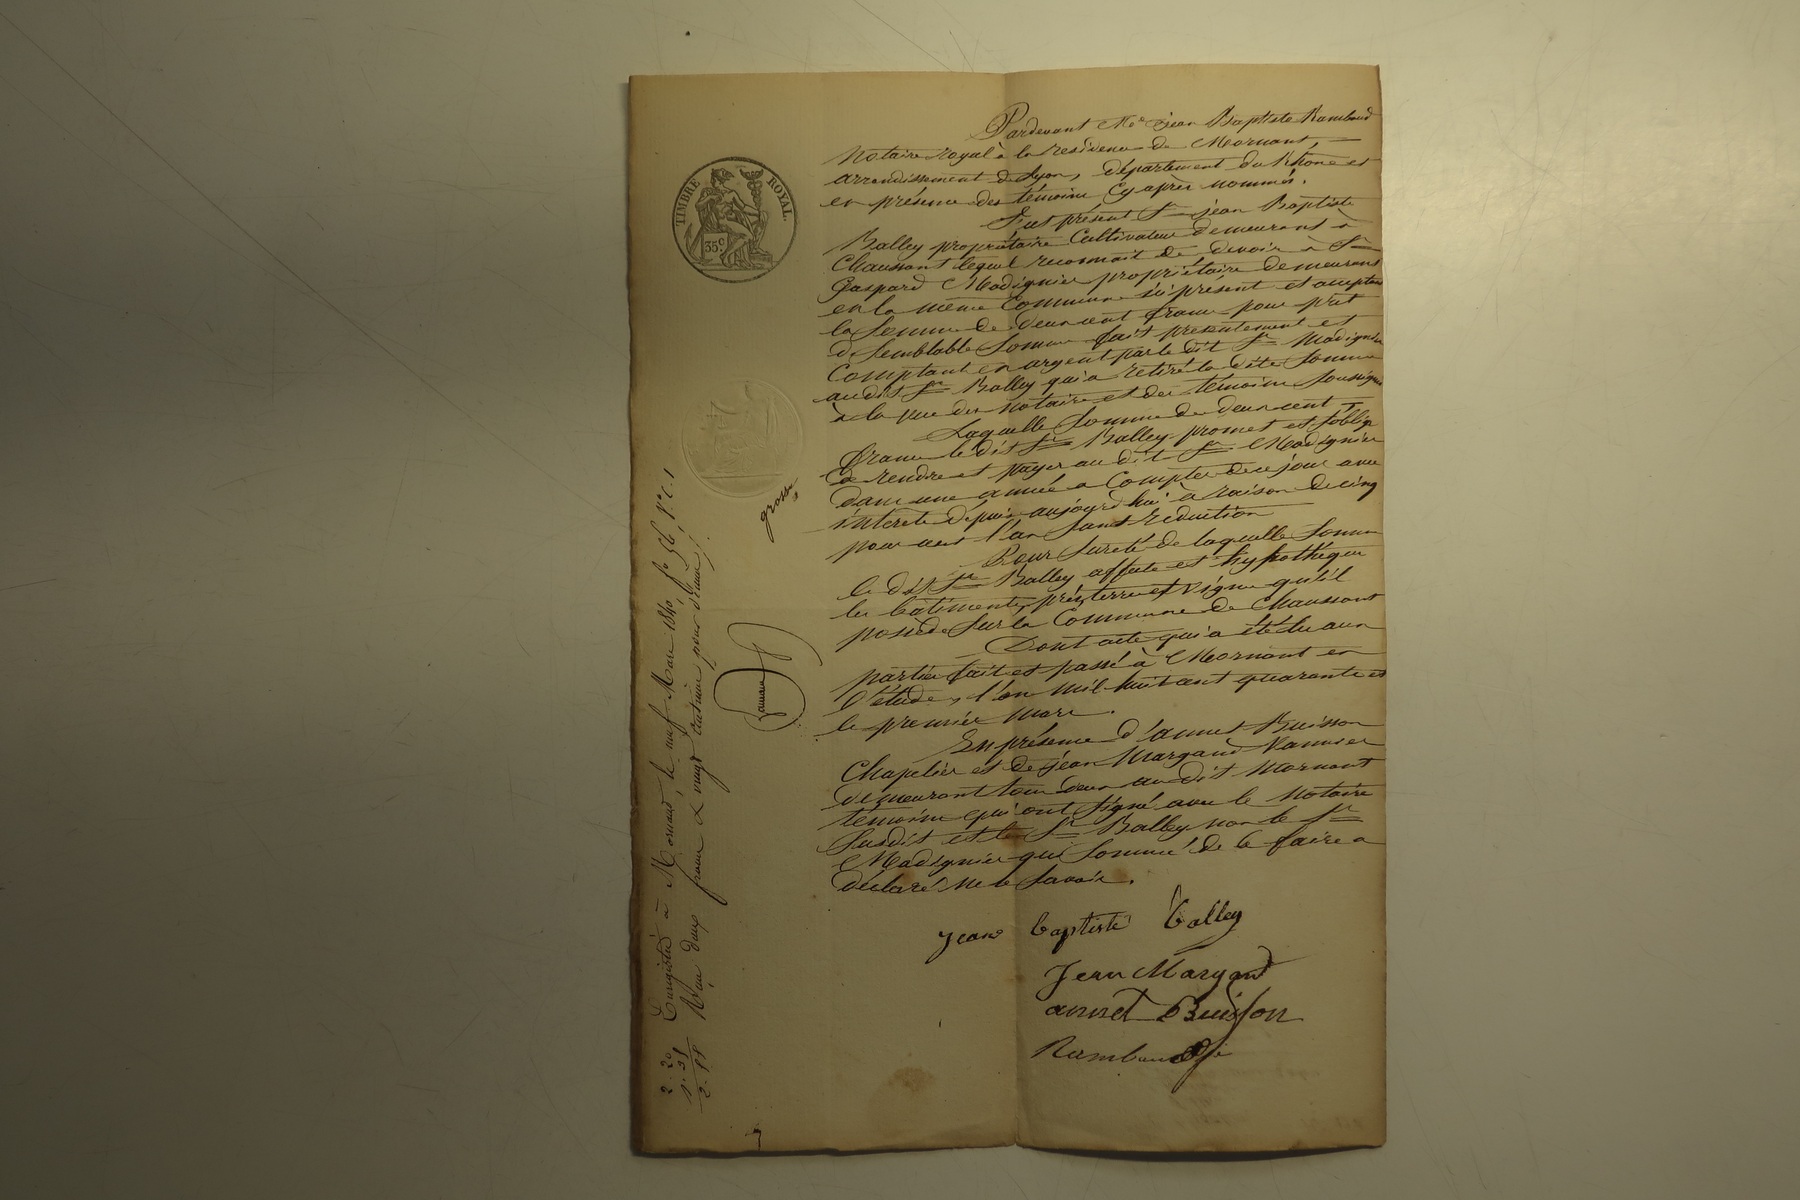 TIMBRE ROYAL.
35 c
Pardevant Me jean Baptiste Rambaud
Notaire royal à la residence de Mornant,
arrondissement de Lyon, département du Rhône et
en présence des témoins cy après nommés.
Fut présent Sr jean Baptiste
Balley propriétaire Cultivateur demeurant à
Chaussant lequel reconnait de devoir à Sr
Gaspard Madignier propriétaire demeurant
en la même Commune ici présent et acceptant
la Somme de deux cent francs pour prêt
de Semblable Somme fait présentement et
Comptant en argent par le dit Sr Madignier
au dit Sr Balley qui a retiré la dite Somme
à la vue du notaire et des témoins Soussignés
Laquelle Somme de deux cent
francs le dit Sr Balley promet et s'oblige
de rendre et payer au dit Sr Madignier
dans une année a Compter de ce jour avec
intérets depuis aujourd'hui à raison de cinq
pour cent l'an Sans réduction
Pour Sureté de laquelle Somme
le dit Sr Balley affecte et hypothèque
les bâtiments, prés, terres et vignes qu'il
possède Sur la Commune de Chaussant
Dont acte qui a été lu aux
parties fait et passé à Mornant en
l'étude, l'an mil huit cent quarante et
le premier mars.
En présence d'annet Buisson
Chapelier et de jean Margand Vannier
demeurant tous deux au dit Mornant
témoins qui ont Signé avec le notaire
Susdit et le Sr Balley non le Sr
Madignier qui Sommé de le faire a
déclaré ne le Savoir.
jean baptiste balley
Jean Margand
annet Buisson
Rambaud
grosse
Enregistré à Mornant, le neuf Mars 1840, fo 56, Vo C. 1
Reçu deux francs & vingt centimes pour dixième.
2. 20